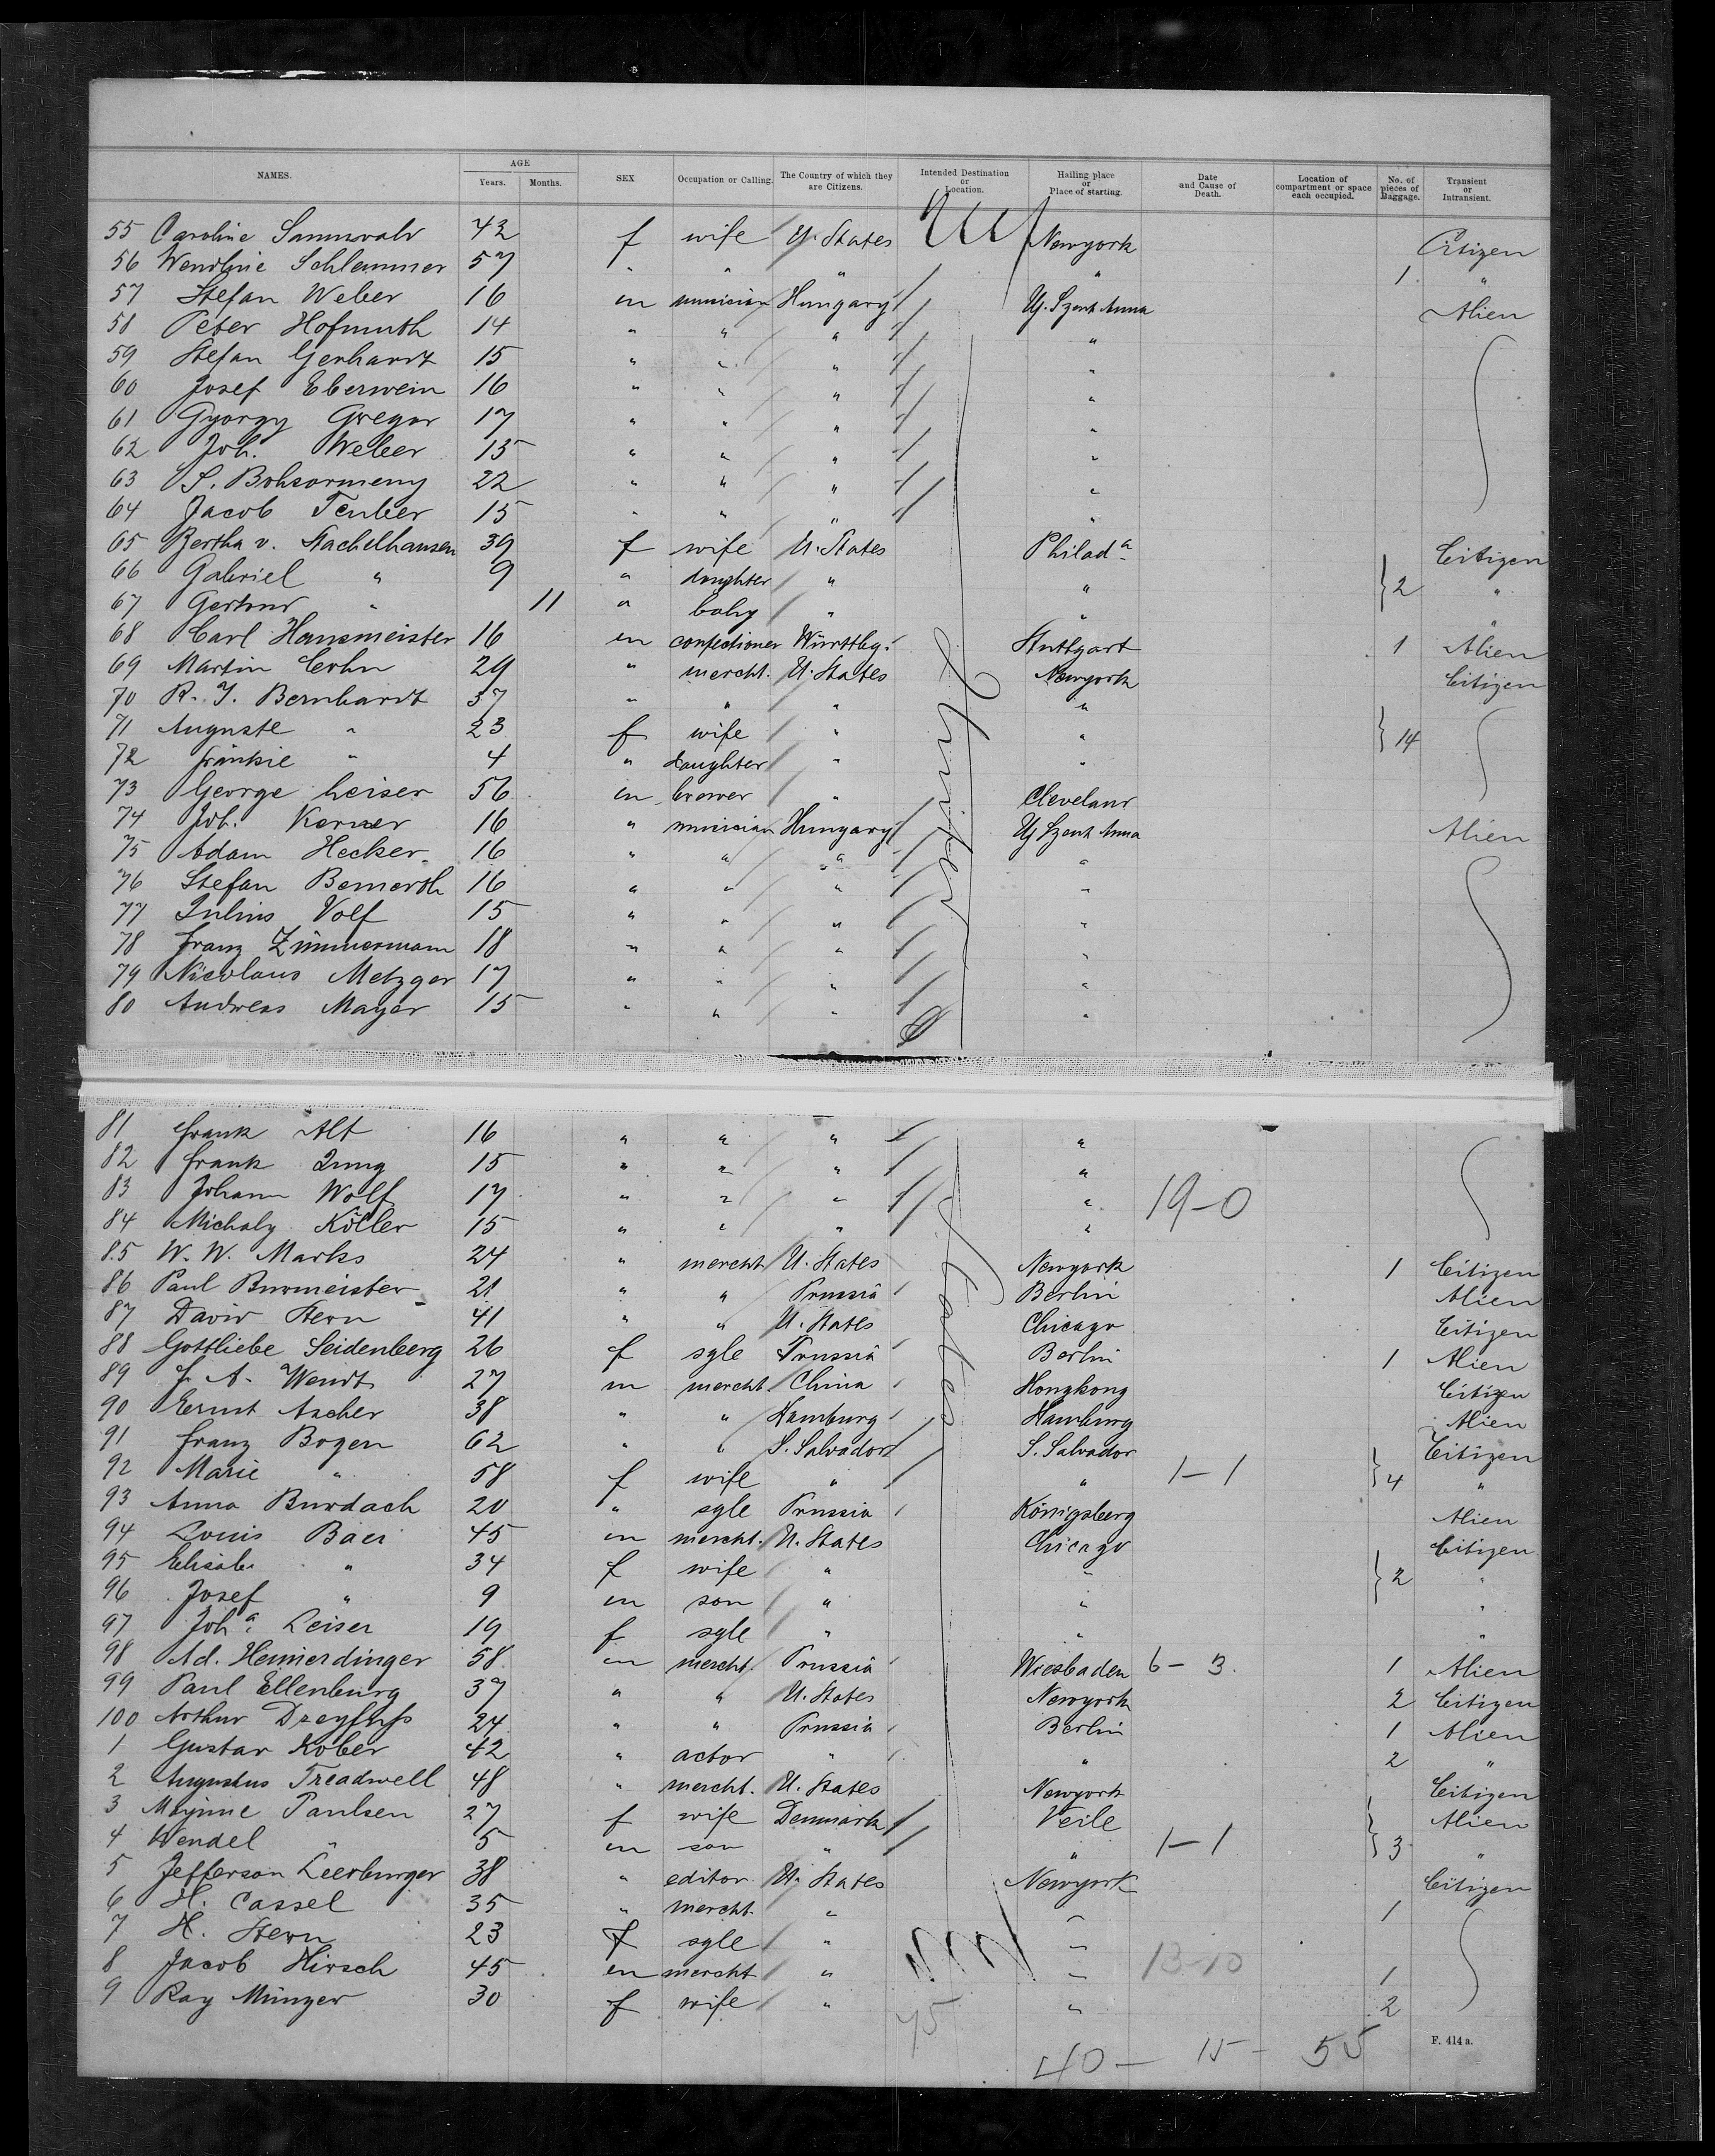 NAMES. AGE Years. Months. SEX Occupation or Calling. The Country of which they are Citizens. Intended Destination or Location. Hailing place or Place of starting. Date and Cause of Death. Location of compartment or space each occupied. No. of pieces of Baggage. Transient or Intransient.
55 Caroline Sannwald 42 f wife U. States Newyork Citizen
56 Wendline Schlemmer 57 " " " " 1. "
57 Stefan Weber 16 m musician Hungary Uj. Szent Anna Alien
58 Peter Hofmuth 14 " " " "
59 Stefan Gerhardt 15 " " " "
60 Josef Eberwein 16 " " " "
61 Gyorgy Gregor 17 " " " "
62 Joh. Weber 15 " " " "
63 S. Bohsormeny 22 " " " "
64 Jacob Teuber 15 " " " "
65 Bertha v. Stachelhausen 39 f wife U. States Philada Citizen
66 Gabriel " 9 " daughter " " 2 "
67 Gertrud " 11 " baby " " "
68 Carl Hausmeister 16 m confectioner Württbg. Stuttgart 1 Alien
69 Martin Cohn 29 " mercht. U. States Newyork Citizen
70 R. J. Bernhardt 37 " " " "
71 Auguste " 23 f wife " " 14
72 Frankie " 4 " daughter " "
73 George Leiser 56 m brewer " Cleveland
74 Joh. Kerner 16 " musician Hungary Uj Szent Anna Alien
75 Adam Hecker 16 " " " "
76 Stefan Bemerth 16 " " " "
77 Julius Volf 15 " " " "
78 Franz Zimmermann 18 " " " "
79 Nicolaus Metzger 17 " " " "
80 Andreas Mayer 15 " " " "
United
81 Frank Alt 16 " " " "
82 Frank Jung 15 " " " "
83 Johann Wolf 17 " " " " 19-0
84 Michaly Köller 15 " " " "
85 W. W. Marks 24 " mercht U. States Newyork 1 Citizen
86 Paul Burmeister 21 " " Prussia Berlin Alien
87 David Stern 41 " " U. States Chicago Citizen
88 Gottliebe Seidenberg 26 f sgle Prussia Berlin 1 Alien
89 F. A. Wendt 27 m mercht China Hongkong Citizen
90 Ernst Ascher 38 " " Hamburg Hamburg Alien
91 Franz Bogen 62 " " S. Salvador S. Salvador Citizen
92 Marie " 58 f wife " " 1-1 4 "
93 Anna Burdach 20 " sgle Prussia Königsberg Alien
94 Louis Baer 45 m mercht. U. States Chicago Citizen
95 Elisab. " 34 f wife " " 2 "
96 Josef " 9 m son " " "
97 Joha. Leiser 19 f sgle " " "
98 Ad. Heimerdinger 58 m mercht. Prussia Wiesbaden 6-3. 1 Alien
99 Paul Ellenburg 37 " " U. States Newyork 2 Citizen
100 Arthur Dreyfuss 24 " " Prussia Berlin 1 Alien
1 Gustav Kober 42 " actor " " 2 "
2 Augustus Treadwell 48 " mercht. U. States Newyork Citizen
3 Paulsen 27 f wife Denmark Veile Alien
4 Wendel " 5 m son " " 1-1 3 "
5 Jefferson Leerburger 38 " editor U. States Newyork Citizen
6 H. Cassel 35 " mercht. " " 1
7 H. Stern 23 f sgle " "
8 Jacob Hirsch 45 m mercht " " 13-10 1
9 Ray Münzer 30 f wife " " 2
States
45
40 - 15 - 55
F. 414 a.